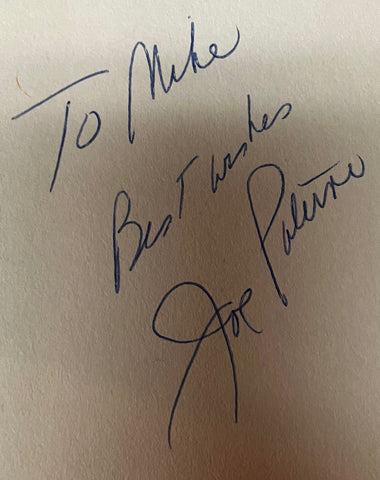 To Mike
Best wishes
Joe Paterno